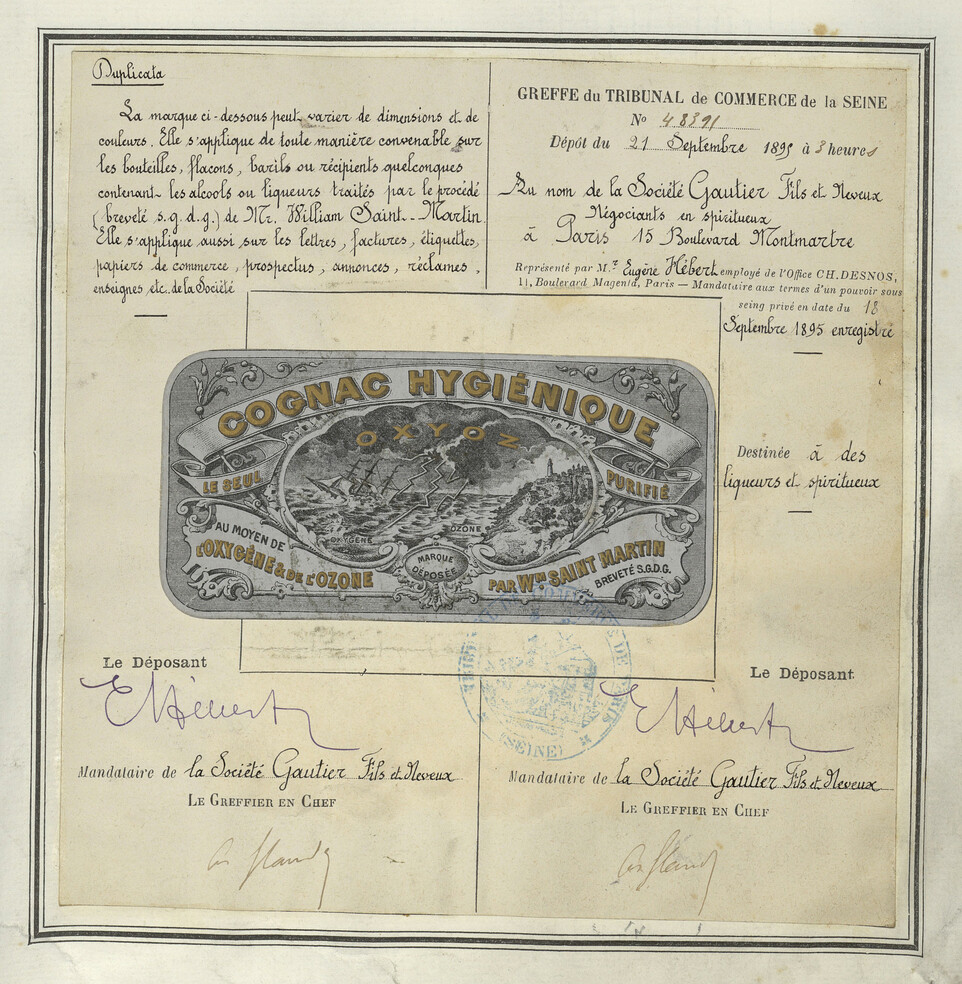 Duplicata
La marque ci-dessous peut varier de dimensions et de
couleurs. Elle s'applique de toute manière convenable sur
les bouteilles, flacons, barils ou récipients quelconques
contenant les alcools ou liqueurs traités par le procédé
(breveté s.g.d.g.) de Mr. William Saint-Martin
Elle s'applique aussi sur les lettres, factures, étiquettes,
papiers de commerce, prospectus, annonces, réclames,
enseignes etc. de la Société
GREFFE du TRIBUNAL de COMMERCE de la SEINE
No 48391
Dépôt du 21 Septembre 1895 à 3 heures
Au nom de la Société Gautier Fils et Neveux
Négociants en spiritueux
à Paris 15 Boulevard Montmartre
Représenté par M.r Eugène Hébert employé de l'Office CH. DESNOS,
11, Boulevard Magenta, Paris — Mandataire aux termes d'un pouvoir sous
seing privé en date du 18
Septembre 1895 enregistré
Destinée à des
liqueurs et spiritueux
COGNAC HYGIÉNIQUE
OXYOZ
LE SEUL
PURIFIÉ
OXYGÈNE
OZONE
AU MOYEN DE
L'OXYGÈNE & DE L'OZONE
MARQUE
DÉPOSÉE
PAR Wm SAINT MARTIN
BREVETÉ S.G.D.G.
(SEINE)
Le Déposant
E Hébert
Mandataire de la Société Gautier Fils et Neveux
LE GREFFIER EN CHEF
Le Déposant
E Hébert
Mandataire de la Société Gautier Fils et Neveux
LE GREFFIER EN CHEF